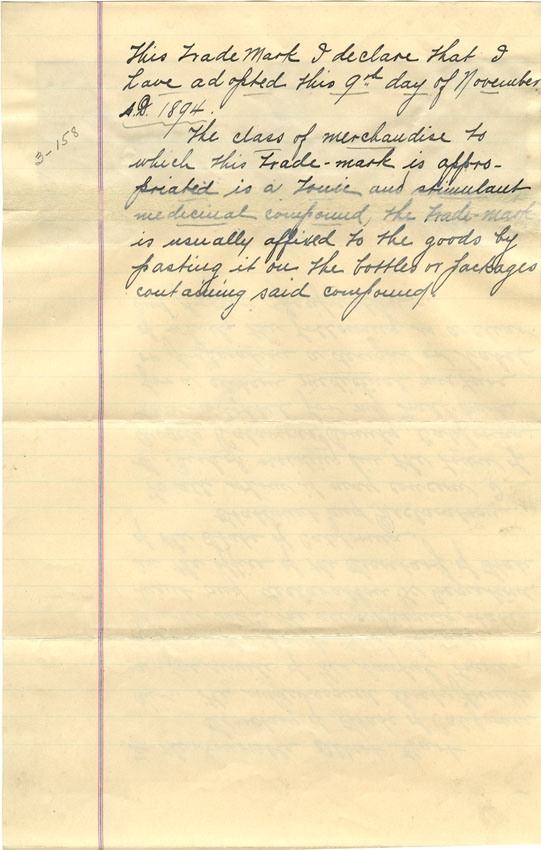 This Trade Mark I declare that I
have adopted this 9th day of November
A.D. 1894.
3-158
The class of merchandise to
which this trade-mark is appro-
priated is a tonic and stimulant
medicinal compound, the trade-mark
is usually affixed to the goods by
pasting it on the bottles or packages
containing said compound.